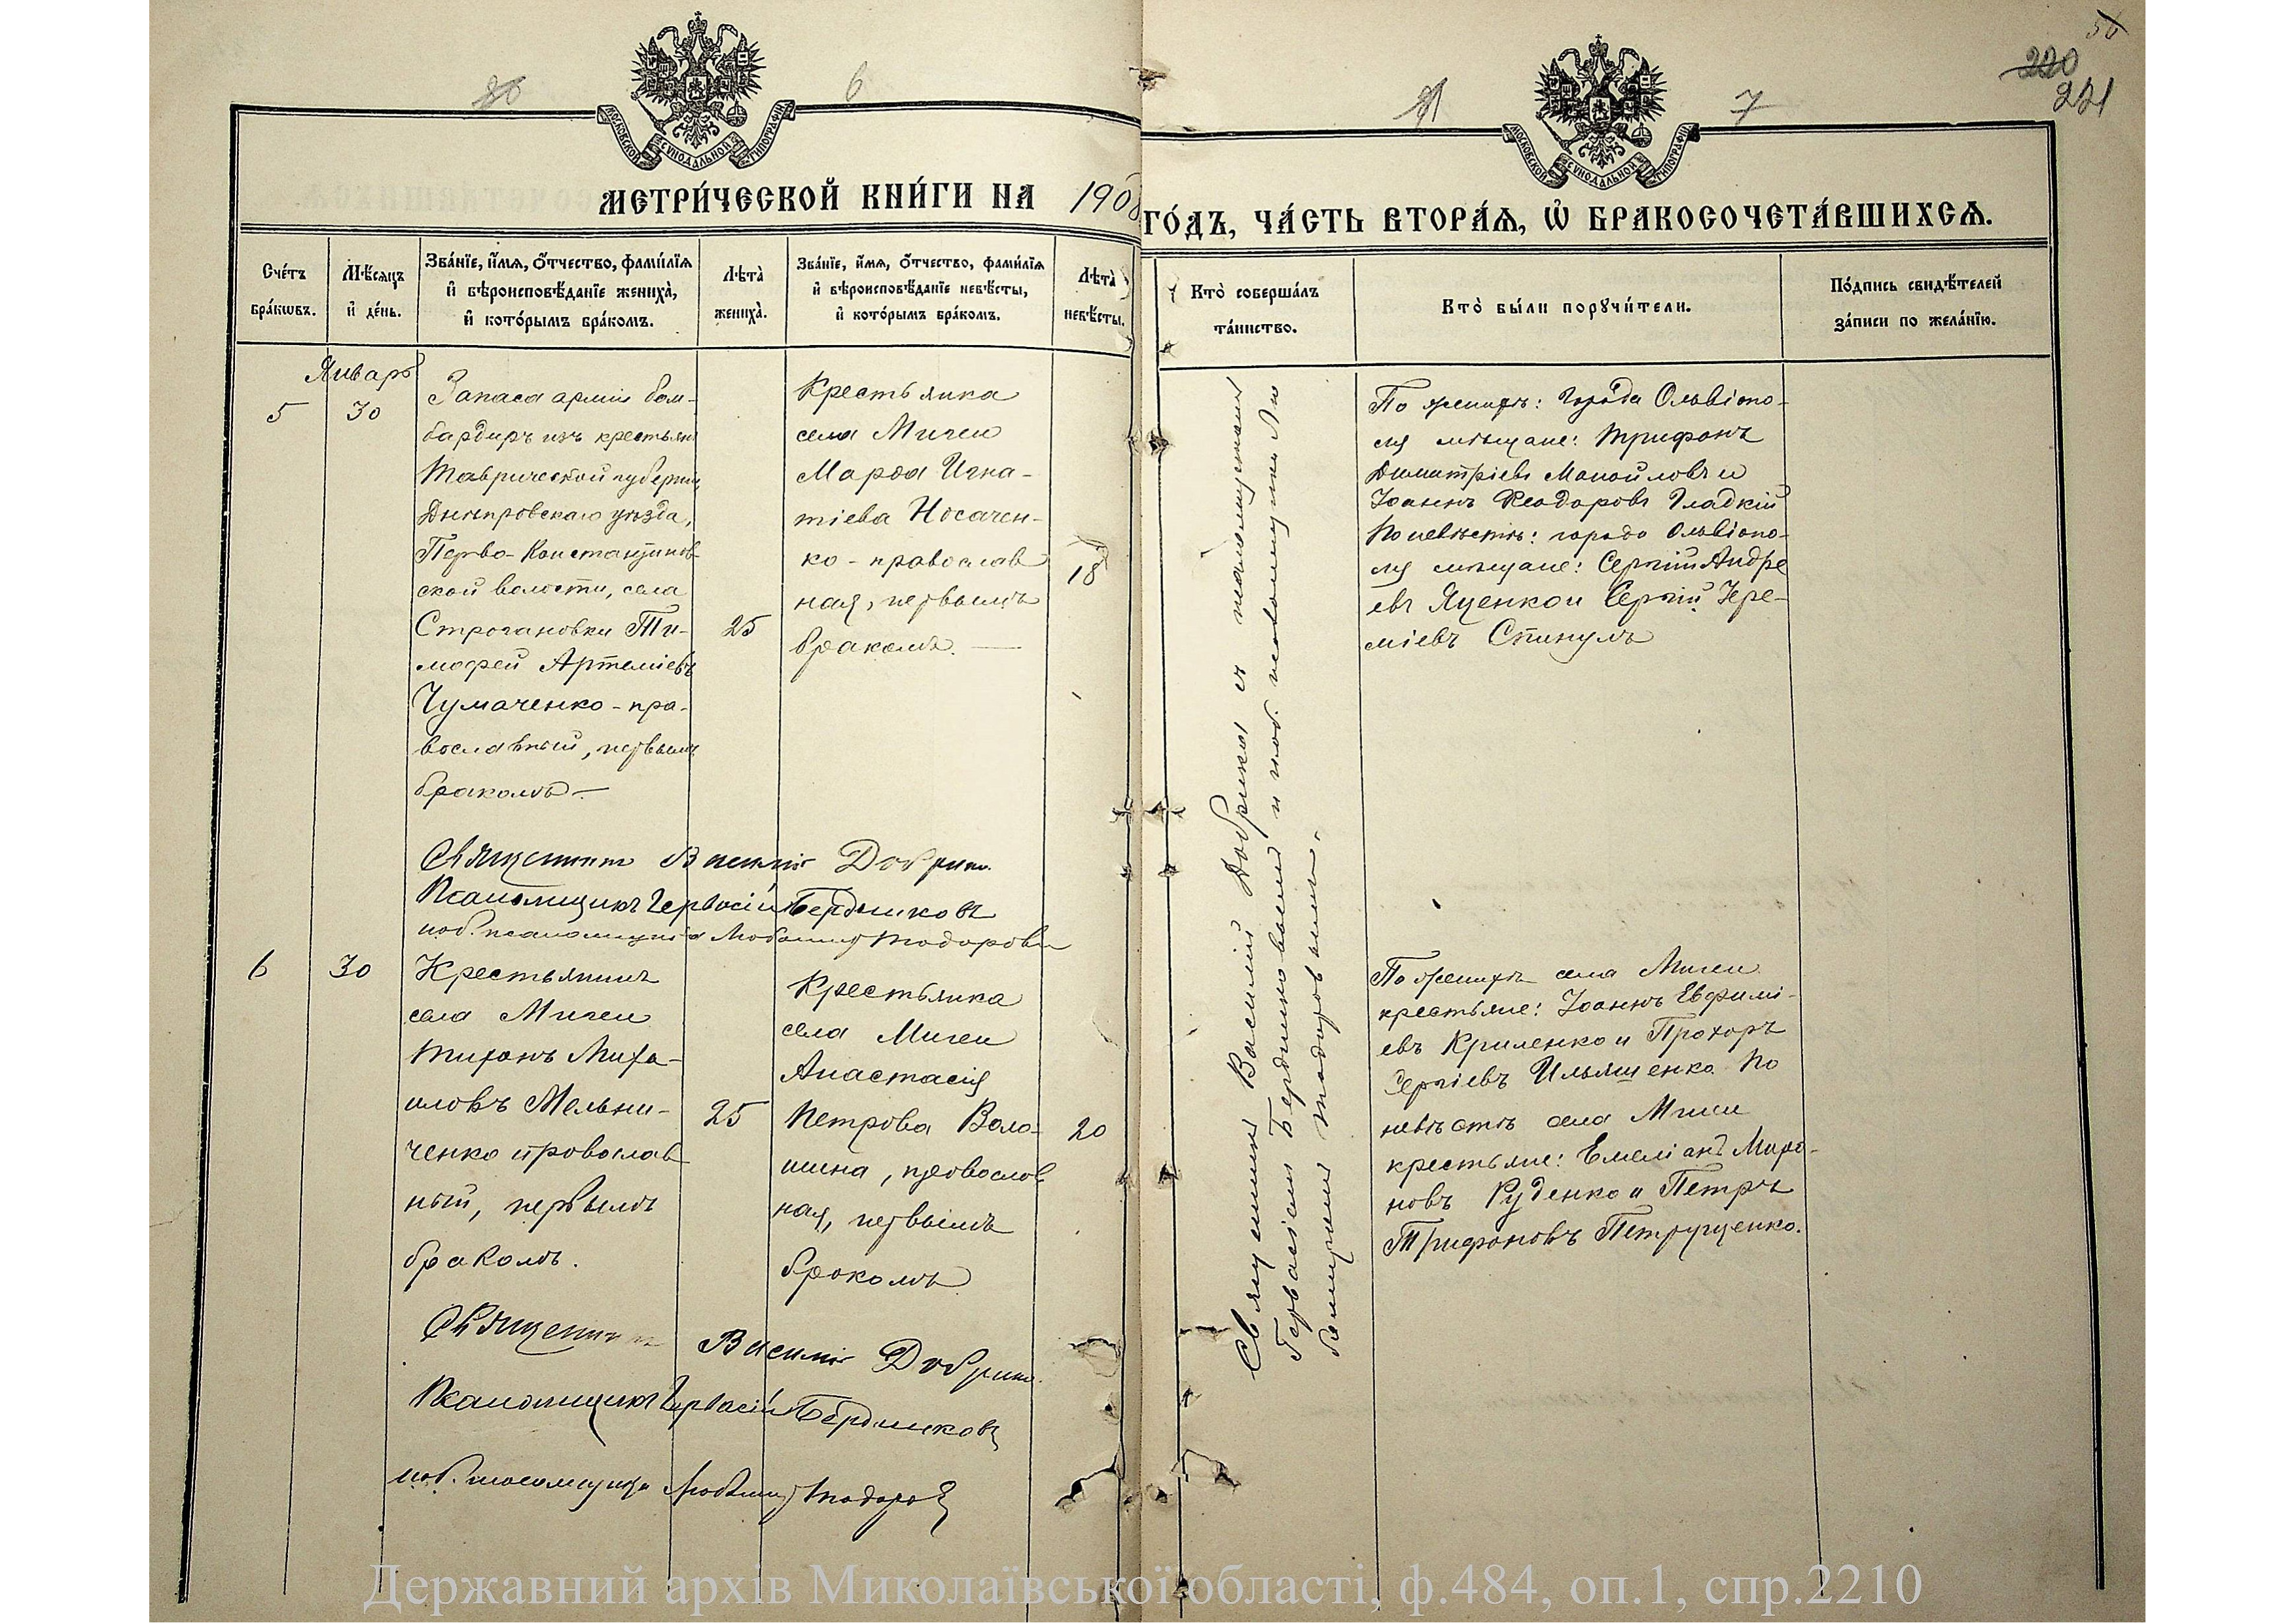 56
220
221
80
6
81
7
МОСКОВСКОЙ СѴНОДАЛЬНОЙ ТИПОГРАФІИ
МОСКОВСКОЙ СѴНОДАЛЬНОЙ ТИПОГРАФІИ
МЕТРИ́ЧЕСКОЙ КНИ́ГИ НА 1908
ГО́ДЪ, ЧА́СТЬ ВТОРА́Ѧ, Ѡ҆ БРАКОСОЧЕТА́ВШИХСѦ.
Сче́тъ
бра́кѡвъ.
Мѣ́сѧцъ
и҆ де́нь.
Зва́нїе, и҆́мѧ, ѻ҆́тчество, фами́лїѧ
и҆ вѣроисповѣ́данїе жениха̀,
и҆ кото́рымъ бра́комъ.
Лѣта̀
жениха̀.
Зва́нїе, и҆́мѧ, ѻ҆́тчество, фами́лїѧ
и҆ вѣроисповѣ́данїе невѣ́сты,
и҆ кото́рымъ бра́комъ.
Лѣта̀
невѣ́сты.
Кто̀ соверша́лъ
та́инство.
Кто̀ бы́ли порꙋчи́тели.
По́дпись свидѣ́телей
за́писи по жела́нїю.
Январь
5
30
Запаса арміи бом-
бардиръ изъ крестьян
Таврической губерніи,
Днѣпровскаго уѣзда,
Перво-Константинов-
ской волости, села
Строгановки Ти-
мофей Артеміевъ
Чумаченко - пра-
вославный, первымъ
бракомъ —
25
Крестьянка
села Мигеи
Марѳа Игна-
тіева Носачен-
ко - православ
ная, первымъ
бракомъ. —
18
Священникъ Василій Добрик
съ псаломщиками
Гервасіемъ Бердниковымъ и исп. об. псаломщика Лю
бомиромъ Тодоровымъ.
По женихѣ: города Ольвіопо-
ля мѣщане: Трифонъ
Димитріевъ Манойловъ и
Іоаннъ Ѳеодоровъ Гладкій
По невѣстѣ: города Ольвіопо-
ля мѣщане: Сергій Андре
евъ Яценко и Сергій Іере-
міевъ Спинулъ
Священникъ Василій Добрик
Псаломщикъ Гервасій Бердниковъ
и об. псаломщика Любомиръ Тодоровъ
6
30
Крестьянинъ
села Мигеи
Тихонъ Миха-
иловъ Мельни-
ченко православ
ный, первымъ
бракомъ.
25
Крестьянка
села Мигеи
Анастасія
Петрова Воло-
шина, православ
ная, первымъ
бракомъ
20
По женихѣ села Мигеи
крестьяне: Іоаннъ Евфимі-
евъ Криленко и Прохоръ
Сергіевъ Ильяшенко. По
невѣстѣ села Мигеи
крестьяне: Емеліанъ Миро-
новъ Руденко и Петръ
Трифоновъ Петрушенко.
Священникъ Василій Добрик
Псаломщикъ Гервасій Бердниковъ
и об. псаломщика Любомиръ Тодоровъ
Державний архів Миколаївської області, ф.484, оп.1, спр.2210